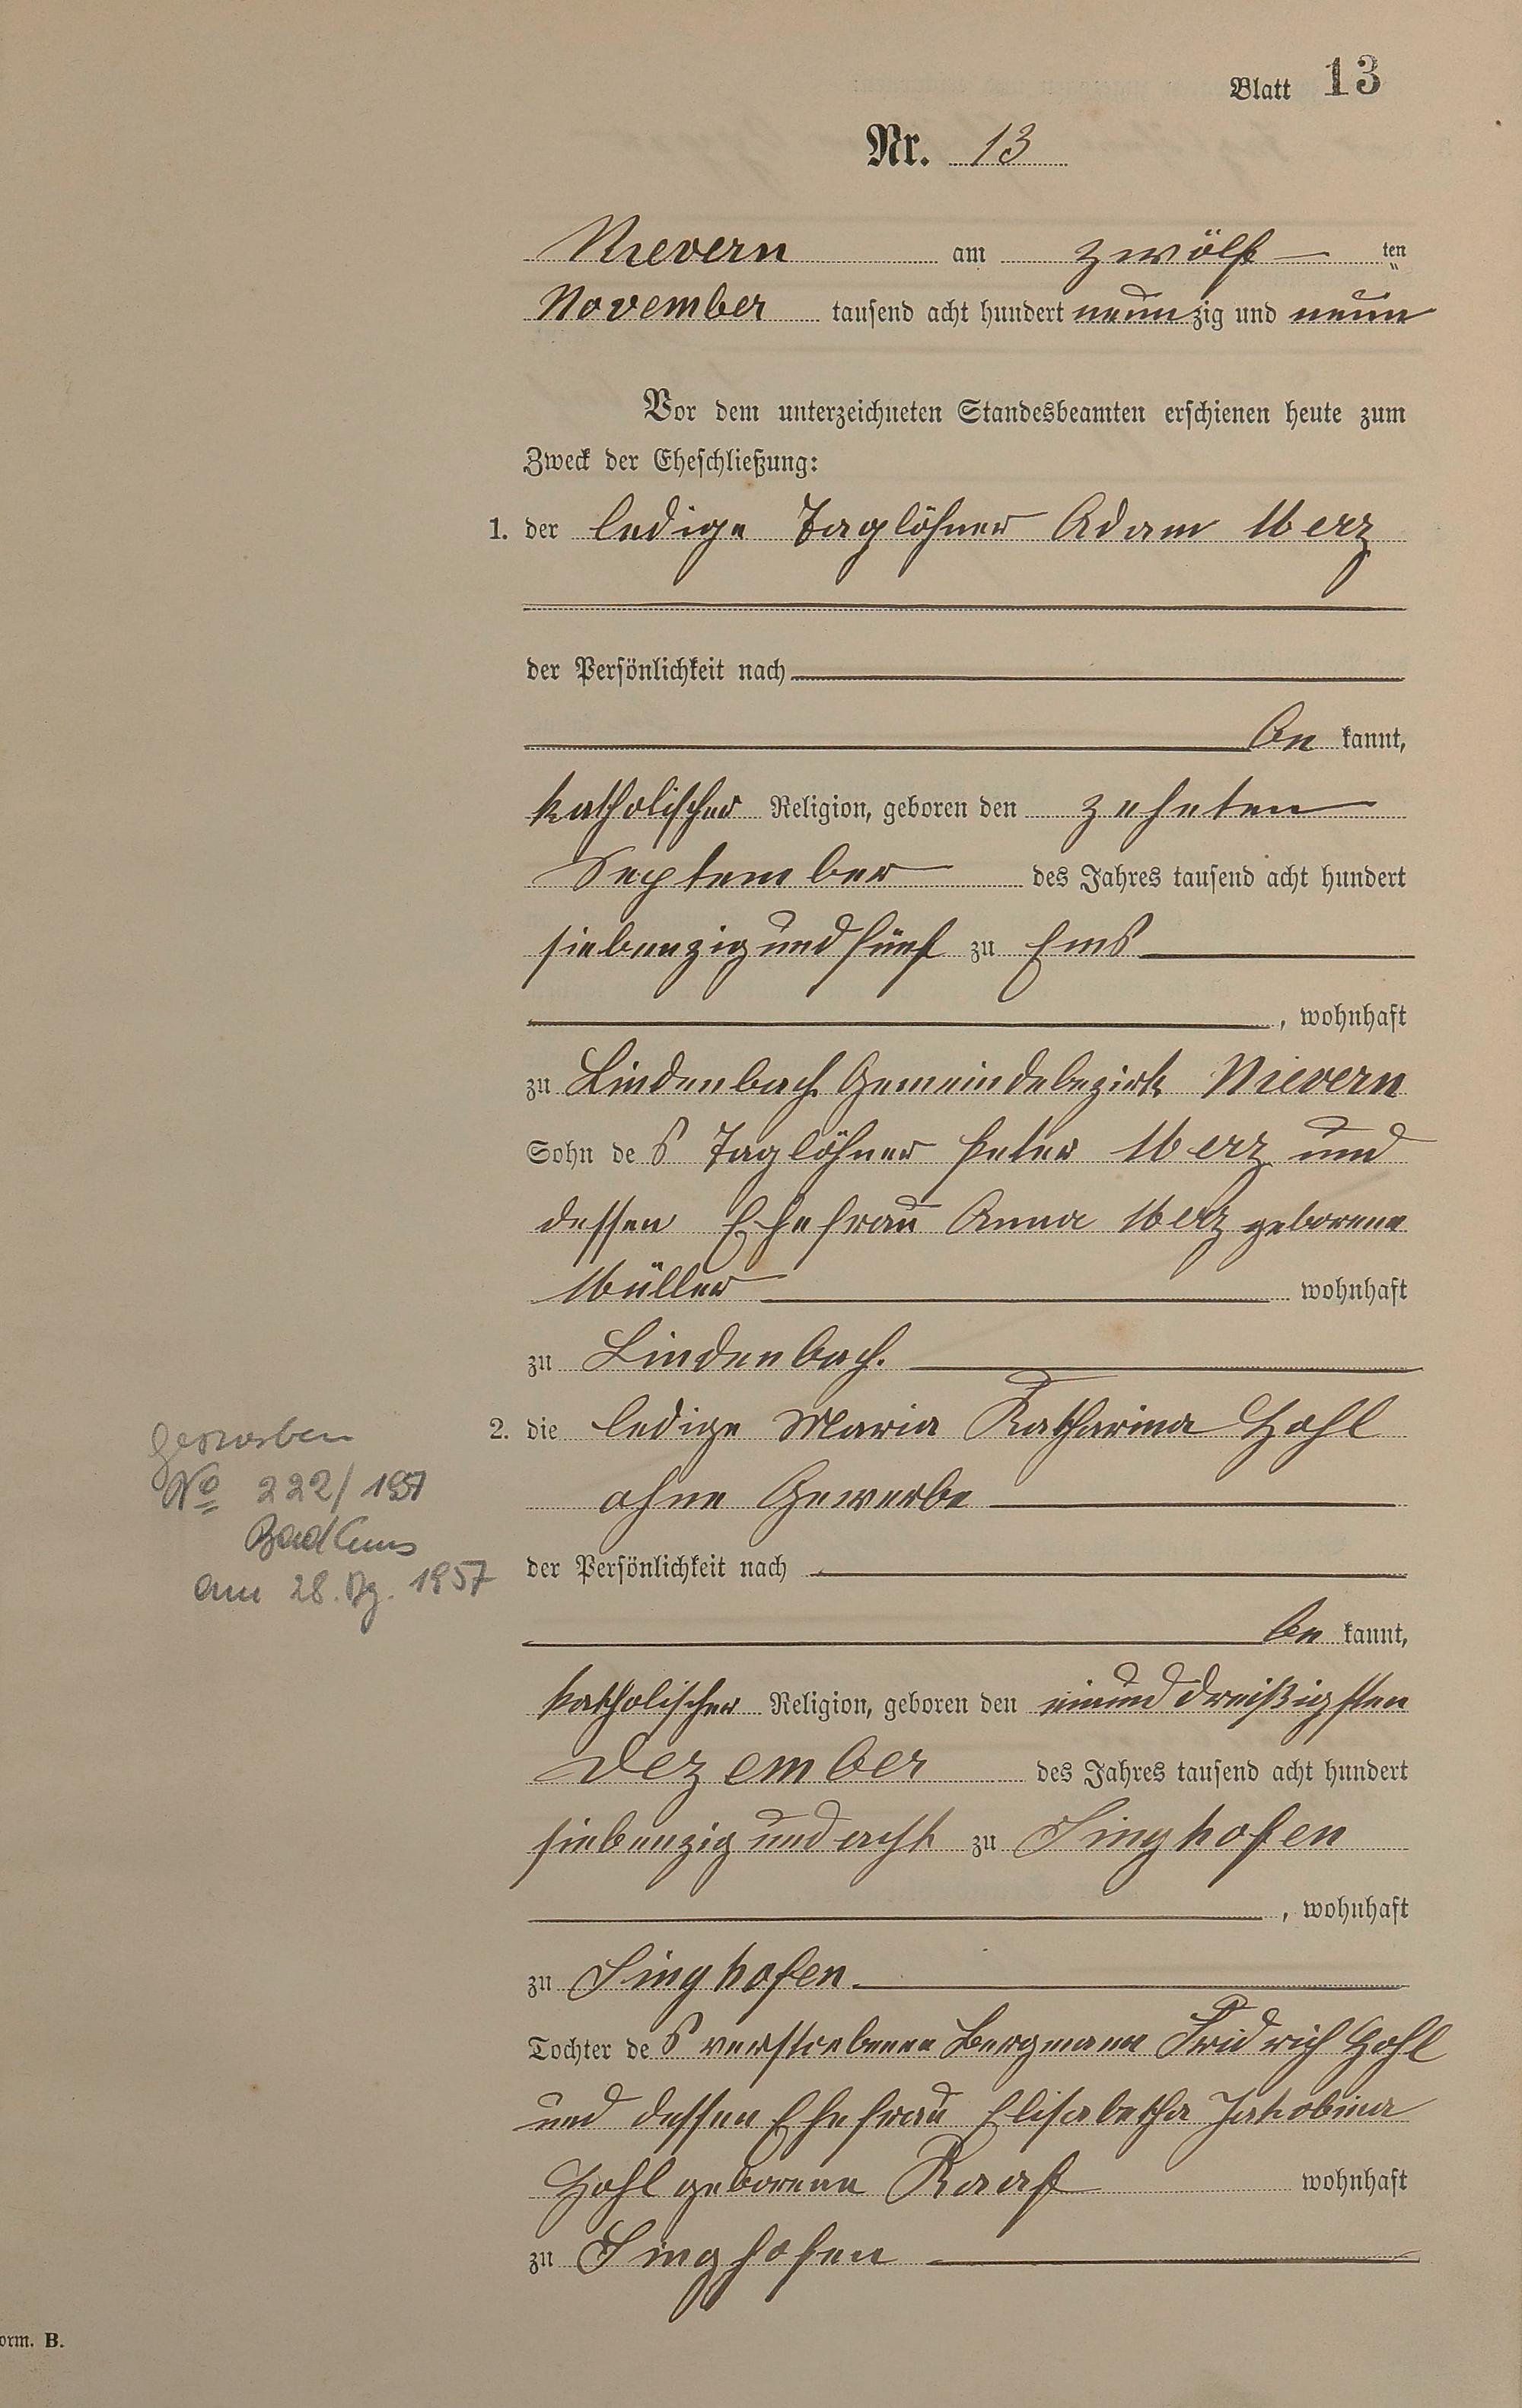 Blatt 13
Nr. 13
Nievern am zwölf ten
November tausend acht hundert neunzig und neun
Vor dem unterzeichneten Standesbeamten erschienen heute zum
Zweck der Eheschließung:
1. der ledige Taglöhner Adam Merz
der Persönlichkeit nach
be kannt,
katholischer Religion, geboren den zehnten
September des Jahres tausend acht hundert
siebenzig und fünf zu Ems
, wohnhaft
zu Lindenbach Gemeindebezirk Nievern
Sohn des Taglöhner Peter Merz und
dessen Ehefrau Anna Merz geborene
Müller wohnhaft
zu Lindenbach.
2. die ledige Maria Katharina Hohl
ohne Gewerbe
der Persönlichkeit nach
be kannt,
katholischer Religion, geboren den einund dreißigsten
Dezember des Jahres tausend acht hundert
siebenzig und acht zu Singhofen
, wohnhaft
zu Singhofen
Tochter des verstorbenen Bergmann Fridrich Hohl
und dessen Ehefrau Elisabetha Jakobina
Hohl geborene Raaf wohnhaft
zu Singhofen
gestorben
No 222/1957
Bad Ems
am 28. Dz. 1957
orm. B.